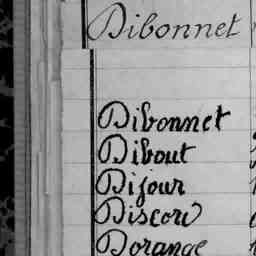 Dibonnet
Dibonnet
Dibout
Dijour
Discord
Dorange